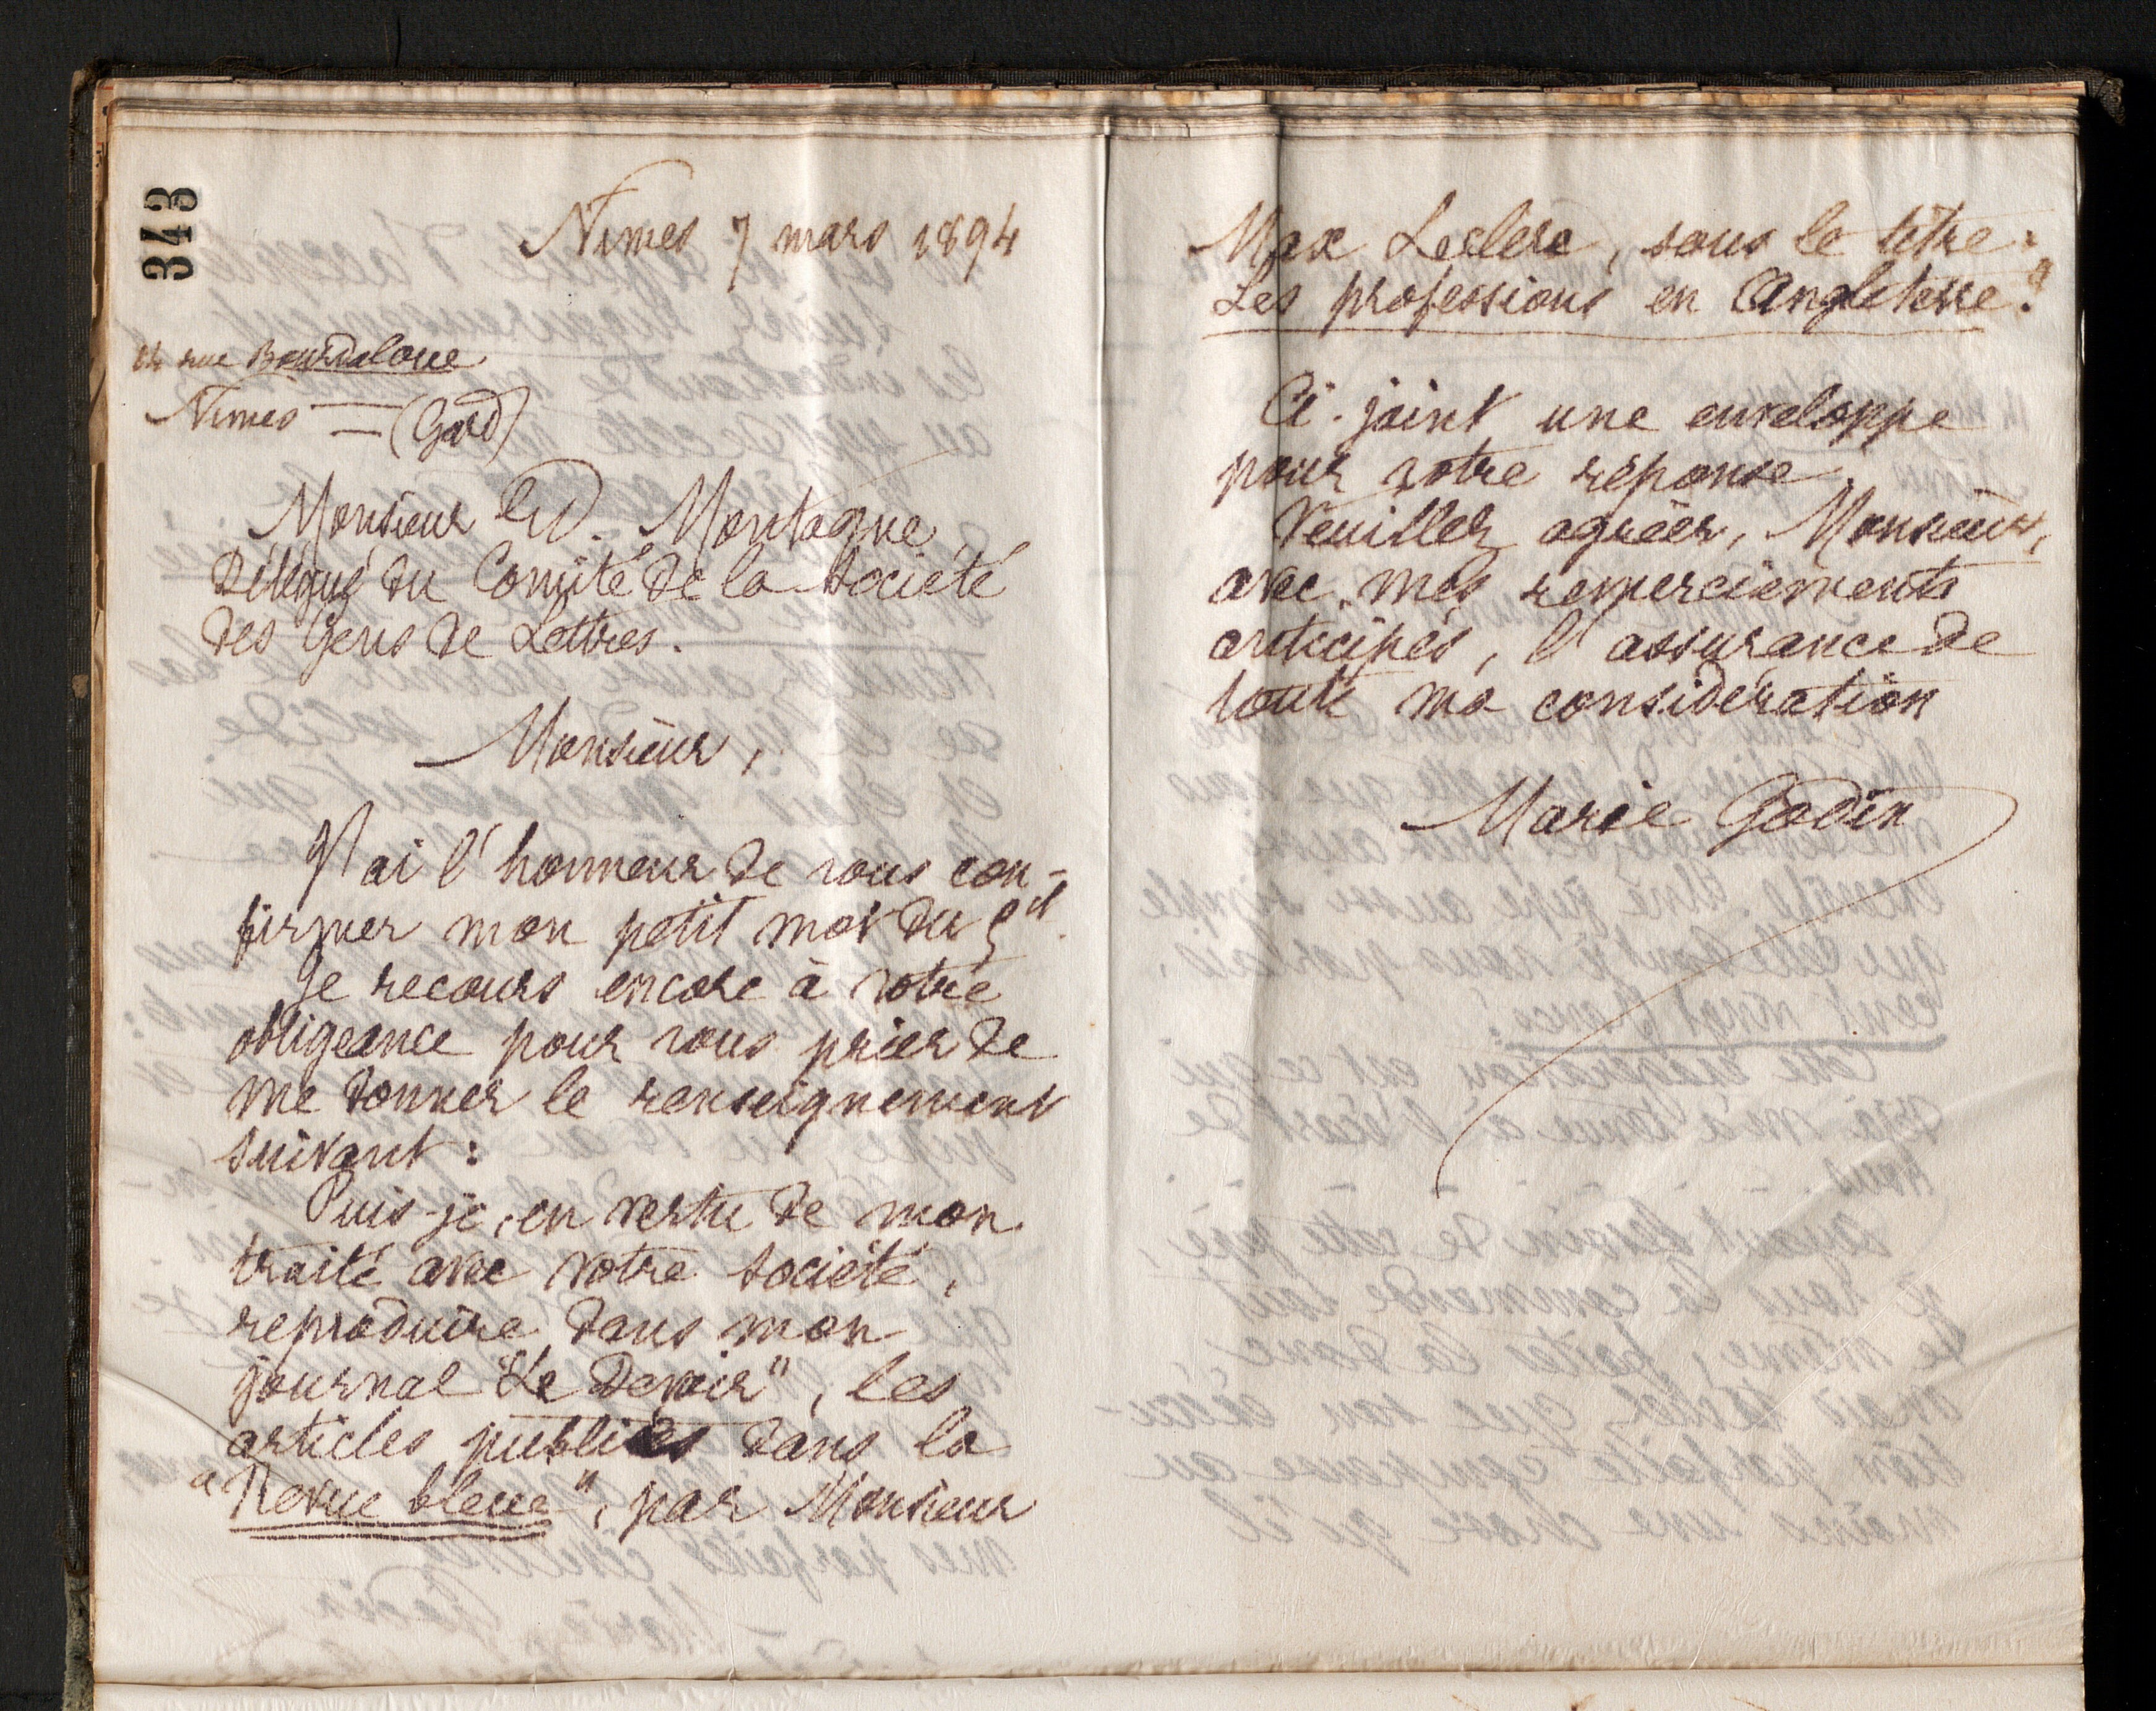 343
Nîmes 7 mars 1894
14 rue Bourdaloue
Nîmes — (Gard)
Monsieur Ed. Montagne
Délégué du Comité de la Société
des Gens de Lettres.
Monsieur,
J'ai l'honneur de vous con-
firmer mon petit mot du 5 ct.
Je recours encore à votre
obligeance pour vous prier de
me donner le renseignement
suivant :
Puis-je, en vertu de mon
traité avec votre société,
reproduire dans mon
journal "Le Devoir", les
articles publiés dans la
"Revue bleue", par Monsieur
Max Leclerc, sous le titre :
Les professions en Angleterre ?
Ci-joint une enveloppe
pour votre réponse
Veuillez agréer, Monsieur,
avec mes remerciements
anticipés, l'assurance de
toute ma considération
Marie Godin